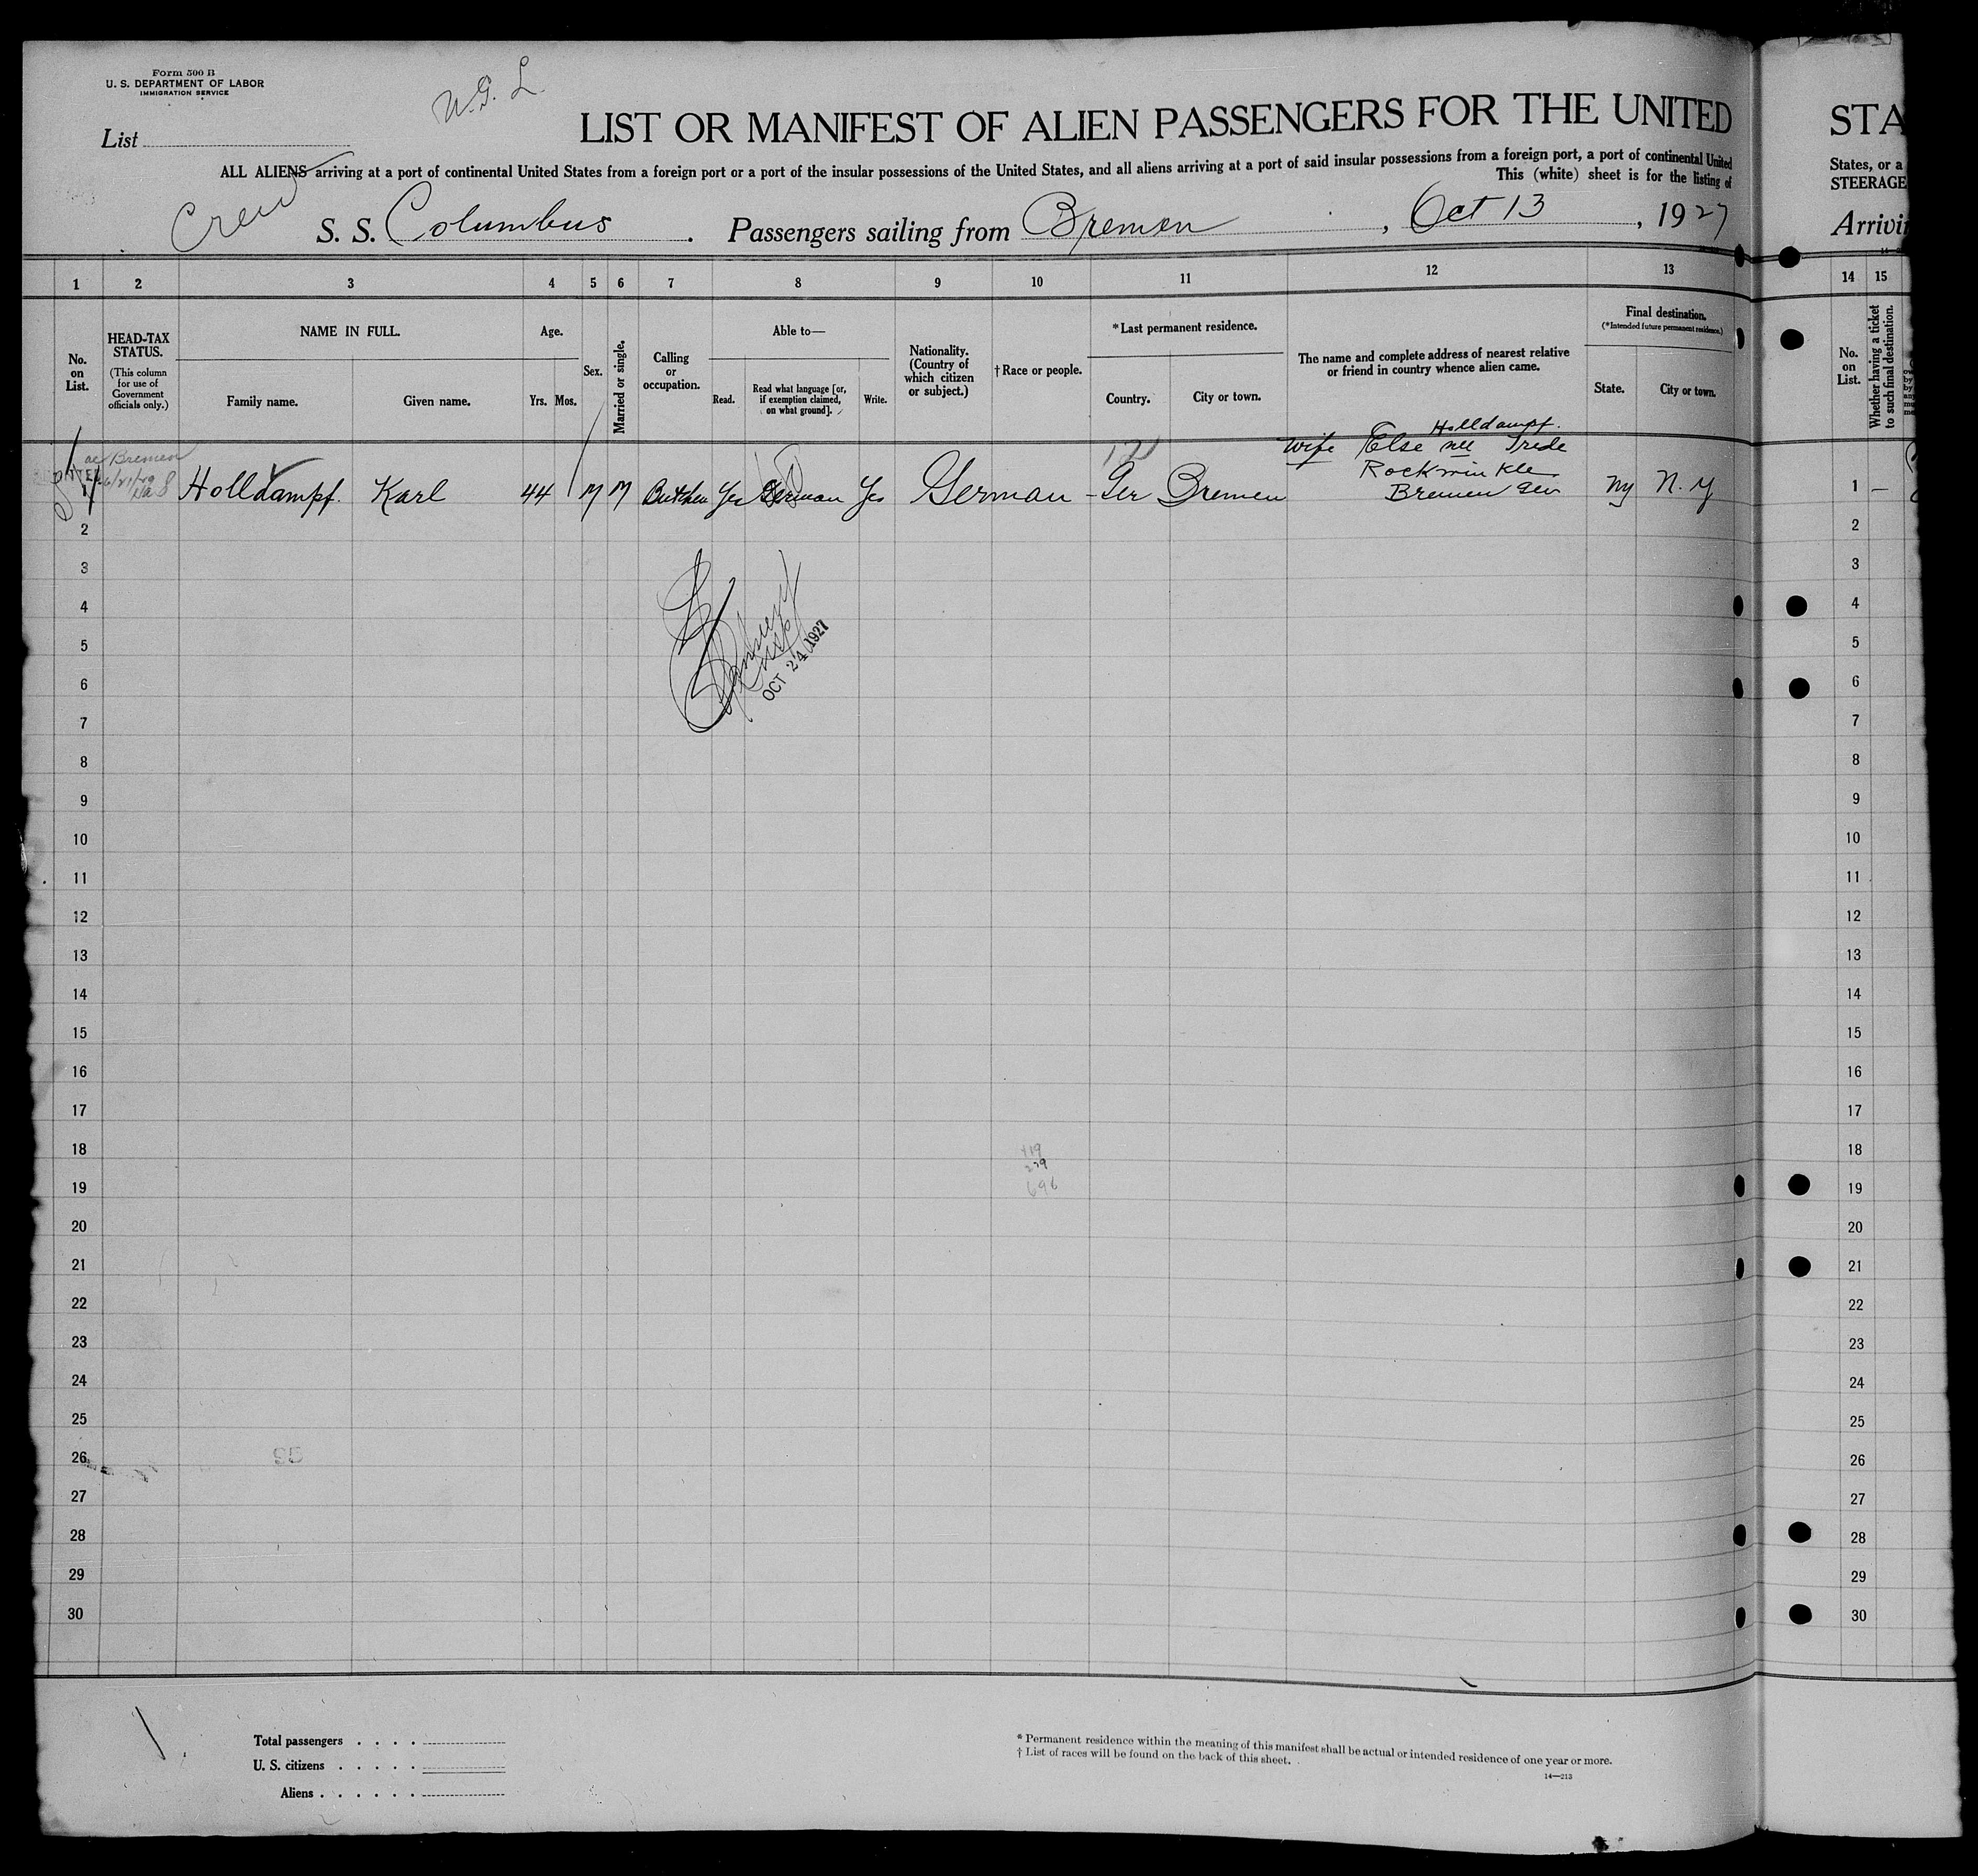 Form 500 B
U. S. DEPARTMENT OF LABOR
IMMIGRATION SERVICE
N. G. L.
List
LIST OR MANIFEST OF ALIEN PASSENGERS FOR THE UNITED
STA
ALL ALIENS arriving at a port of continental United States from a foreign port or a port of the insular possessions of the United States, and all aliens arriving at a port of said insular possessions from a foreign port, a port of continental United
States, or a
This (white) sheet is for the listing of
STEERAGE
Crew
S. S. Columbus. Passengers sailing from Bremen, Oct 13, 1927
Arrivin
1 2 3 4 5 6 7 8 9 10 11 12 13
14 15
No. on List.
HEAD-TAX STATUS.
(This column for use of Government officials only.)
NAME IN FULL.
Family name. Given name.
Age.
Yrs. Mos.
Sex.
Married or single.
Calling or occupation.
Able to—
Read.
Read what language [or, if exemption claimed, on what ground].
Write.
Nationality. (Country of which citizen or subject.)
† Race or people.
*Last permanent residence.
Country. City or town.
The name and complete address of nearest relative or friend in country whence alien came.
Final destination.
(*Intended future permanent residence.)
State. City or town.
No. on List.
Whether having a ticket to such final destination.
Bremen
Holldampf.
wife Else nee Trede
Rockwinkle
1 Holldampf. Karl 44 M M Butcher Yes German Yes German Ger Bremen Bremen Ger NY N. Y
1 —
2
3
4
5
6
7
8
9
10
11
12
13
14
15
16
17
18
19
20
21
22
23
24
25
26
27
28
29
30
2
3
4
5
6
7
8
9
10
11
12
13
14
15
16
17
18
19
20
21
22
23
24
25
26
27
28
29
30
OCT 24 1927
Total passengers . . . .
U. S. citizens . . . . .
Aliens . . . . . .
* Permanent residence within the meaning of this manifest shall be actual or intended residence of one year or more.
† List of races will be found on the back of this sheet.
14—213